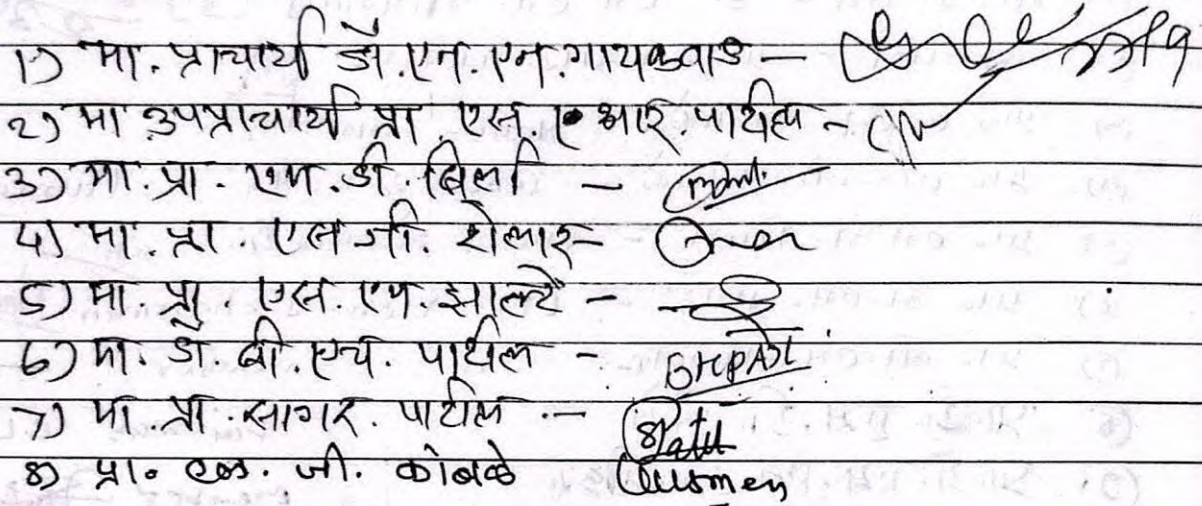 1) मा. प्राचार्य डॉ. एन. एन. गायकवाड —
2) मा उपप्राचार्य प्रा. एस. ए. आर. पाटील -
3) मा. प्रा. एम. डी. -
4) मा. प्रा. एस. जी. शेलार -
5) मा. प्रा. एस. एम. झाल्टे -
6) मा. डॉ. बी. एच. पाटील - BHPatil
7) मा. प्रा. सागर. पाटील. - SPatil
8) प्रा. एल. जी. कांबळे